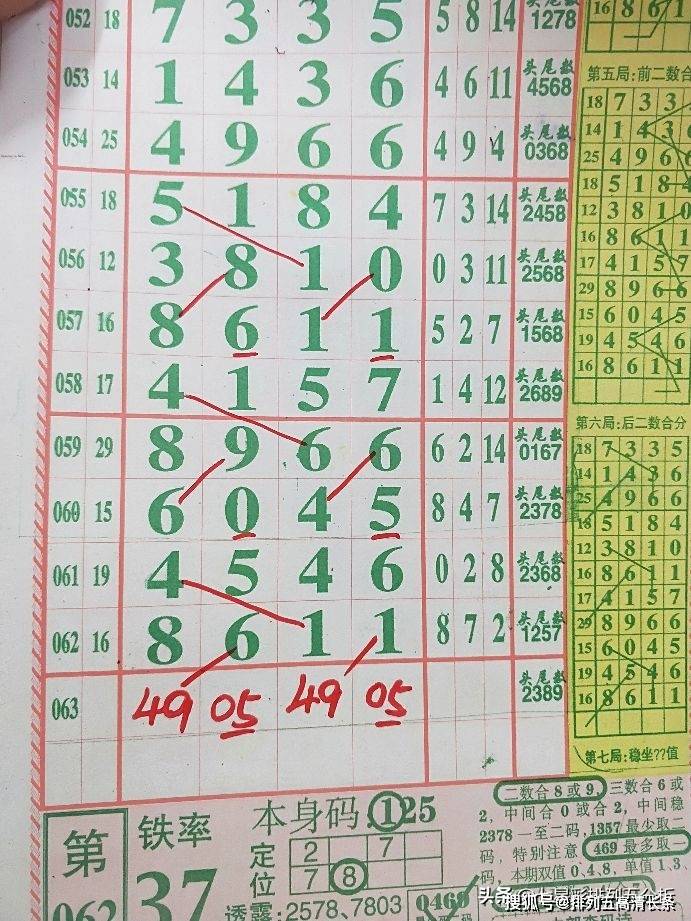 052 18 7 3 3 5 5 8 14 头尾数 1278
053 14 1 4 3 6 4 6 11 头尾数 4568
054 25 4 9 6 6 4 9 4 头尾数 0368
055 18 5 1 8 4 7 3 14 头尾数 2458
056 12 3 8 1 0 0 3 11 头尾数 2568
057 16 8 6 1 1 5 2 7 头尾数 1568
058 17 4 1 5 7 1 4 12 头尾数 2689
059 29 8 9 6 6 6 2 14 头尾数 0167
060 15 6 0 4 5 8 4 7 头尾数 2378
061 19 4 5 4 6 0 2 8 头尾数 2368
062 16 8 6 1 1 8 7 2 头尾数 1257
063 49 05 49 05 头尾数 2389
16 8 6 1
第五局:前二数合
18 7 3 3
14 1 4 3 6
25 4 9 6 6
18 5 1 8 4
12 3 8 1 0
16 8 6 1 1
17 4 1 5 7
29 8 9 6 6
15 6 0 4 5
19 4 5 4 6
16 8 6 1 1
第六局:后二数合分
18 7 3 3 5
14 1 4 3 6
25 4 9 6 6
18 5 1 8 4
12 3 8 1 0
16 8 6 1 1
17 4 1 5 7
29 8 9 6 6
15 6 0 4 5
19 4 5 4 6
16 8 6 1 1
第七局:稳坐??值
第
062
铁率
37
本身码:125
定位
2 7
7 8
透露:2578,7803
0469
二数合 8 或 9,三数合 6 或
2,中间合 0 或合 2,中间稳
2378 一至二码,1357 最少取二
码,特别注意 469 最多取一
码,本期双值 0,4,8,单值 1,3,
头条
搜狐号@排列五高清长条